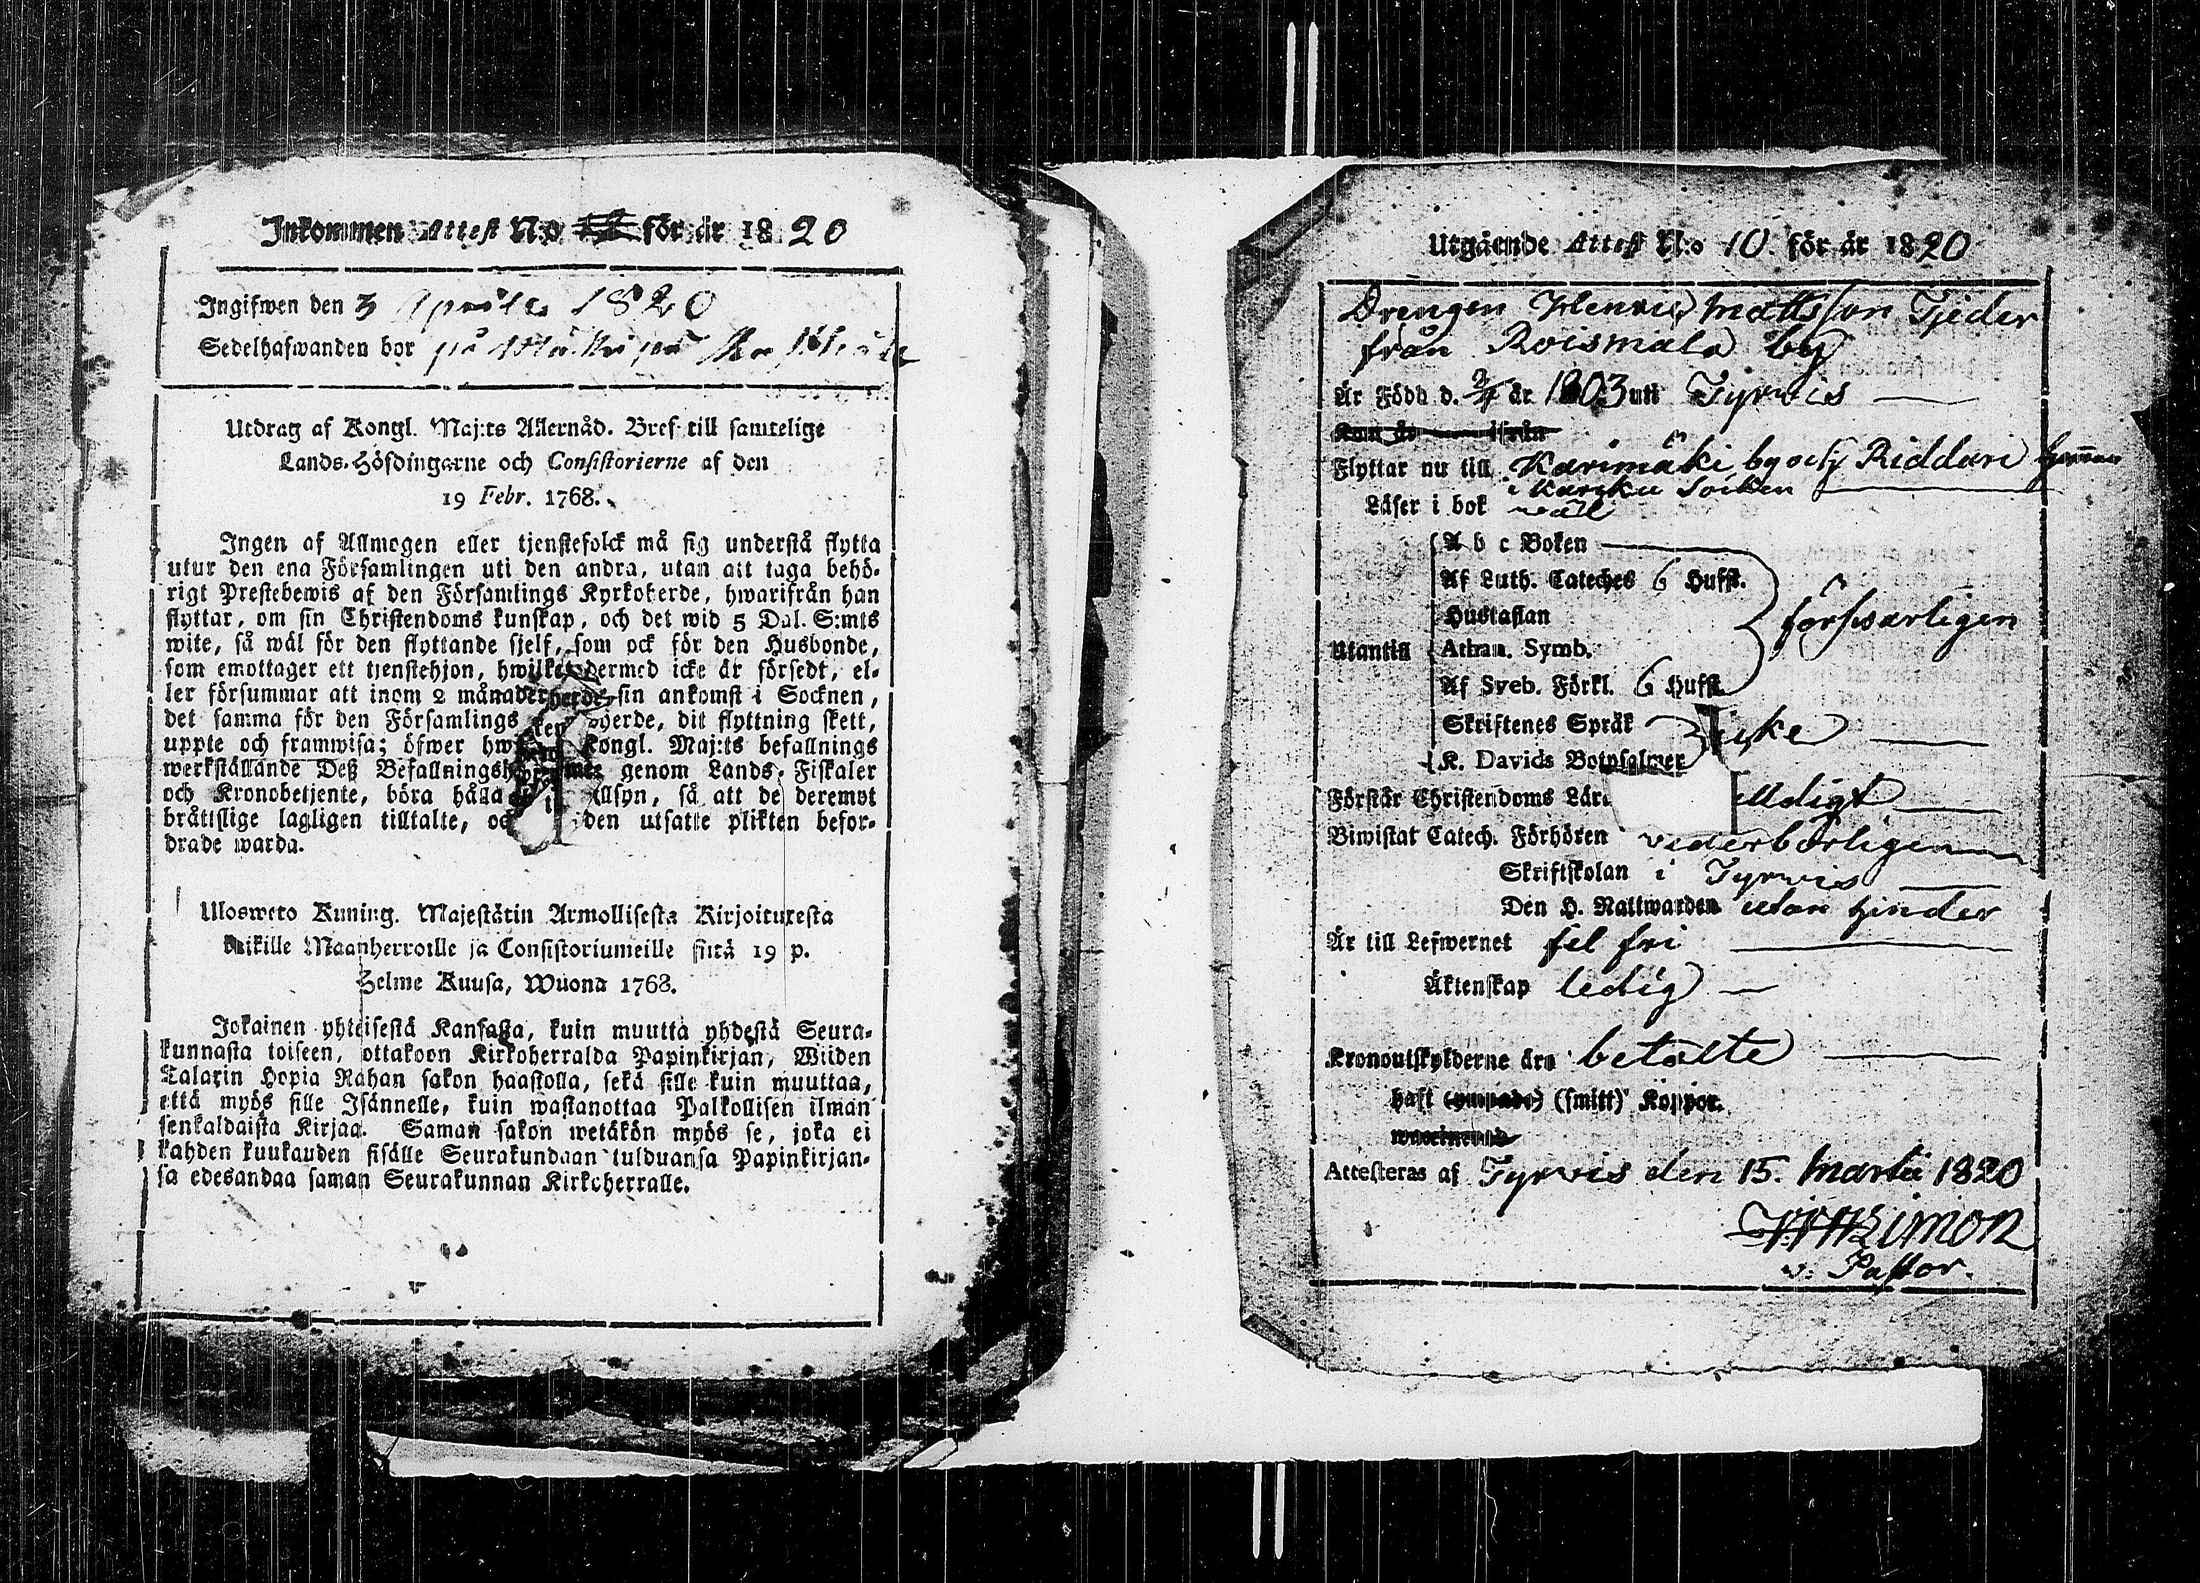 Inkommen Attest N:o för år 1820
Ingifwen den 3 Aprilis 1820
Sedelhafwanden bor på
Utdrag af Kongl. Maj:ts Allernåd. Bref till samtelige
Lands-Höfdingarne och Consistorierne af den
19 Febr. 1768.
Ingen af Allmogen eller tjenstefolck må sig understå flytta
utur den ena Församlingen uti den andra, utan att taga behö-
rigt Prestebewis af den Församlings Kyrkoherde, hwarifrån han
flyttar, om sin Christendoms kunskap, och det wid 5 Dal. S:mts
wite, så wäl för den flyttande sjelf, som ock för den Husbonde,
som emottager ett tjenstehjon, hwilket dermed icke är försedt, el-
ler försummar att inom 2 månader sin ankomst i Socknen,
det samma för den Församlings herde, dit flyttning skett,
uppte och framwisa; öfwer Kongl. Maj:ts befallnings
werkställande Deß genom Lands-Fiskaler
och Kronobetjente, böra hålla så att de deremot
bråttslige lagligen tilltalte, och den utsatte plikten befor-
drade warda.
Ulosweto Kuning. Majestätin Armollisesta Kirjoituxesta
kaikille Maanherroille ja Consistoriumeille siitä 19 p.
Helme Kuusa, Wuona 1768.
Jokainen yhteisestä Kansasta, kuin muutta yhdestä Seura-
kunnasta toiseen, ottakoon Kirkoherralda Papinkirjan, Wiiden
Talarin Hopia Rahan sakon haastolla, sekä sille kuin muuttaa,
että myös sille Isännelle, kuin wastanottaa Palkollisen ilman
senkaldaista Kirjaa. Saman sakon wetäkön myös se, joka ei
kahden kuukauden sisälle Seurakundaan tulduansa Papinkirjan-
sa edesandaa saman Seurakunnan Kirkoherralle.
Utgående Attest N:o 10. för år 1820
Drengen Henric Mattsson Tjeder
från Roismala by
Är Född d. 2/4 år 1803 uti Tyrwis
Kom år ifrån
Flyttar nu till Karimäki by och Riddari
i Karku Soiken
Läser i bok wäl
A b c Boken
Af Luth. Cateches 6 Hufst.
Hustaflan
försvarligen
Utantill Athan. Symb.
Af Sveb. Förkl. 6 Hufst.
Skriftenes Språk
icke
K. Davids Botpsalmer
Förstår Christendoms Lär
Biwistat Catech. Förhören vederbörligen
Skriftskolan i Tyrwis
Den H. Nattwarden utan hinder
Är till Lefwernet fel fri
Äktenskap ledig
Kronoutskylderne äro betalte
haft (ympade) (smitt) Koppor.
Attesteras af Tyrwis den 15. Martii 1820
v. Pastor.